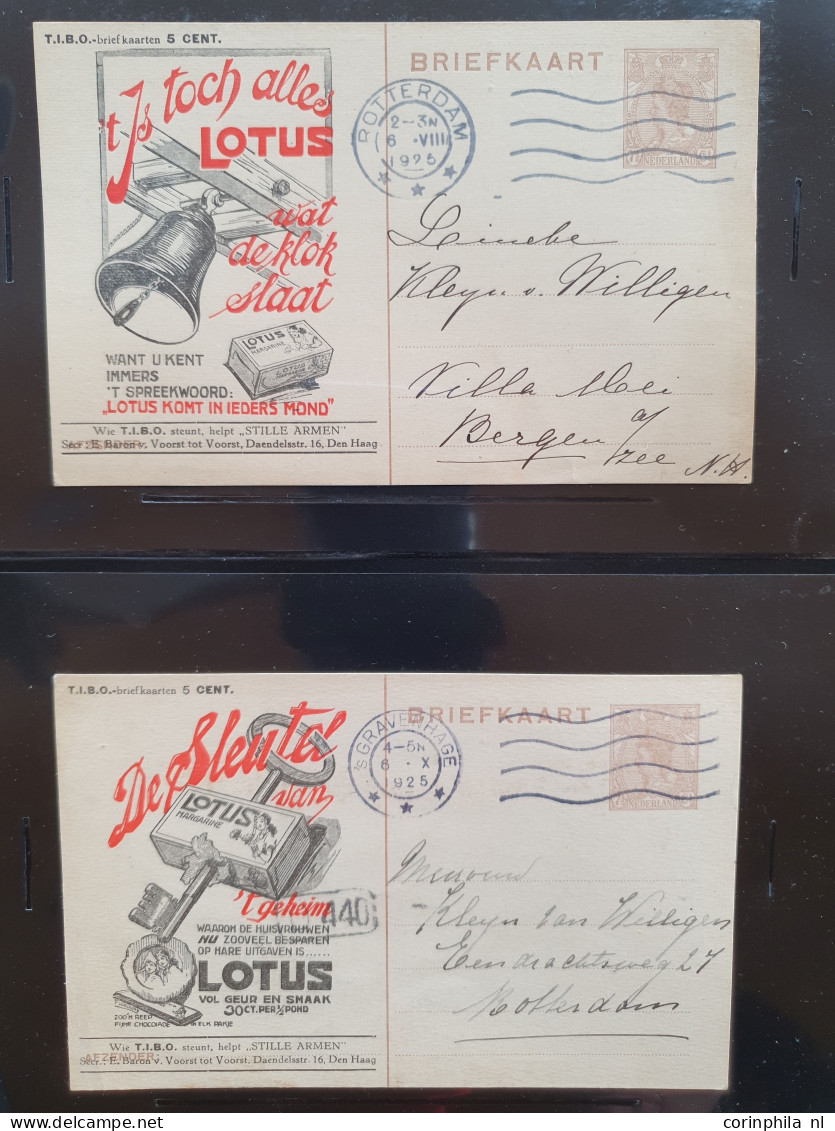 T.I.B.O.-briefkaarten 5 CENT.
't Is toch alles
LOTUS
wat
de klok
slaat
LOTUS
MARGARINE
LOTUS
WANT U KENT
IMMERS
'T SPREEKWOORD:
„LOTUS KOMT IN IEDERS MOND"
Wie T.I.B.O. steunt, helpt „STILLE ARMEN"
AFZENDER:
Secr.: E. Baron v. Voorst tot Voorst, Daendelsstr. 16, Den Haag
BRIEFKAART
ROTTERDAM
2-3N
6 .VIII
1925
NEDERLAND
Kleyn v. Willigen
Villa Mei
Bergen a/
zee N.H.
T.I.B.O.-briefkaarten 5 CENT.
De Sleutel
van
LOTUS
MARGARINE
't geheim
440
WAAROM DE HUISVROUWEN
NU ZOOVEEL BESPAREN
OP HARE UITGAVEN IS......
LOTUS
VOL GEUR EN SMAAK
30 CT. PER ½ POND
ZOO'N REEP
FIJNE CHOCOLADE IN ELK PAKJE
Wie T.I.B.O. steunt, helpt „STILLE ARMEN"
AFZENDER:
Secr.: E. Baron v. Voorst tot Voorst. Daendelsstr. 16, Den Haag
BRIEFKAART
'sGRAVENHAGE
4-5N
6 . X
1925
NEDERLAND
Mevrouw
Kleyn van Willigen
Eendrachtsweg 27
Rotterdam
corinphila nl